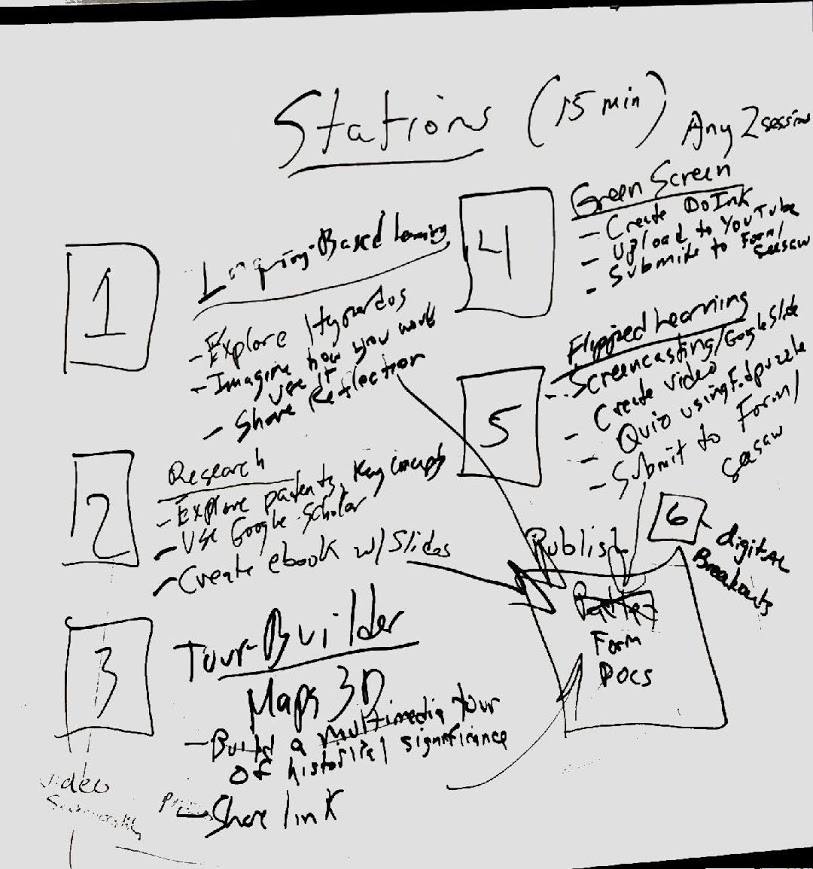 Stations (15 min)
Any 2 sessions
1
Inquiry-Based Learning
- Explore Hyperdocs
- Imagine how you would
use it
- Share Reflection
2
Research
- Explore patents, Key concepts
- Use Google Scholar
- Create ebook w/ Slides
3
Tour-Builder
Maps 3D
- Build a multimedia tour
of historical significance
- Share link
video
4
Green Screen
- Create DoInk
- Upload to YouTube
- Submit to Form/
Seesaw
5
Flipped Learning
- Screencasting/Google Slide
- Create video
- Quiz using Edpuzzle
- Submit to Form/
Seesaw
6
digital
Breakouts
Publish
Form
Docs